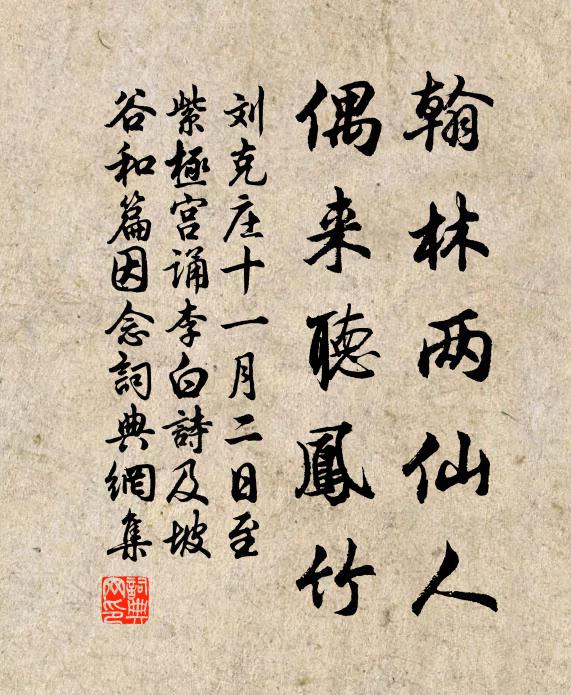 翰林两仙人
偶来聽鳳竹
刘克庄十一月二日至
紫極宫诵李白詩及坡
谷和篇因念詞典網集
詞典
网印